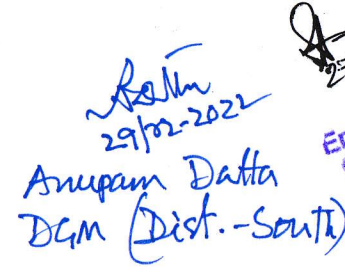 29/12-2022
Anupam Datta
DGM (Dist.-South)